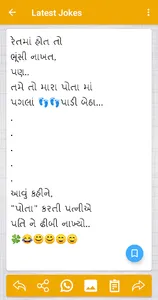 Latest Jokes
રેતમાં હોત તો
ભૂંસી નાખત,
પણ..
તમે તો મારા પોતા માં
પગલાં 👣👣પાડી બેઠા...
.
.
.
.
.
આવું કહીને.
"પોતા" કરતી પત્નીએ
પતિ ને ઢીબી નાખ્યો..
🍀😂😃😃😄😄